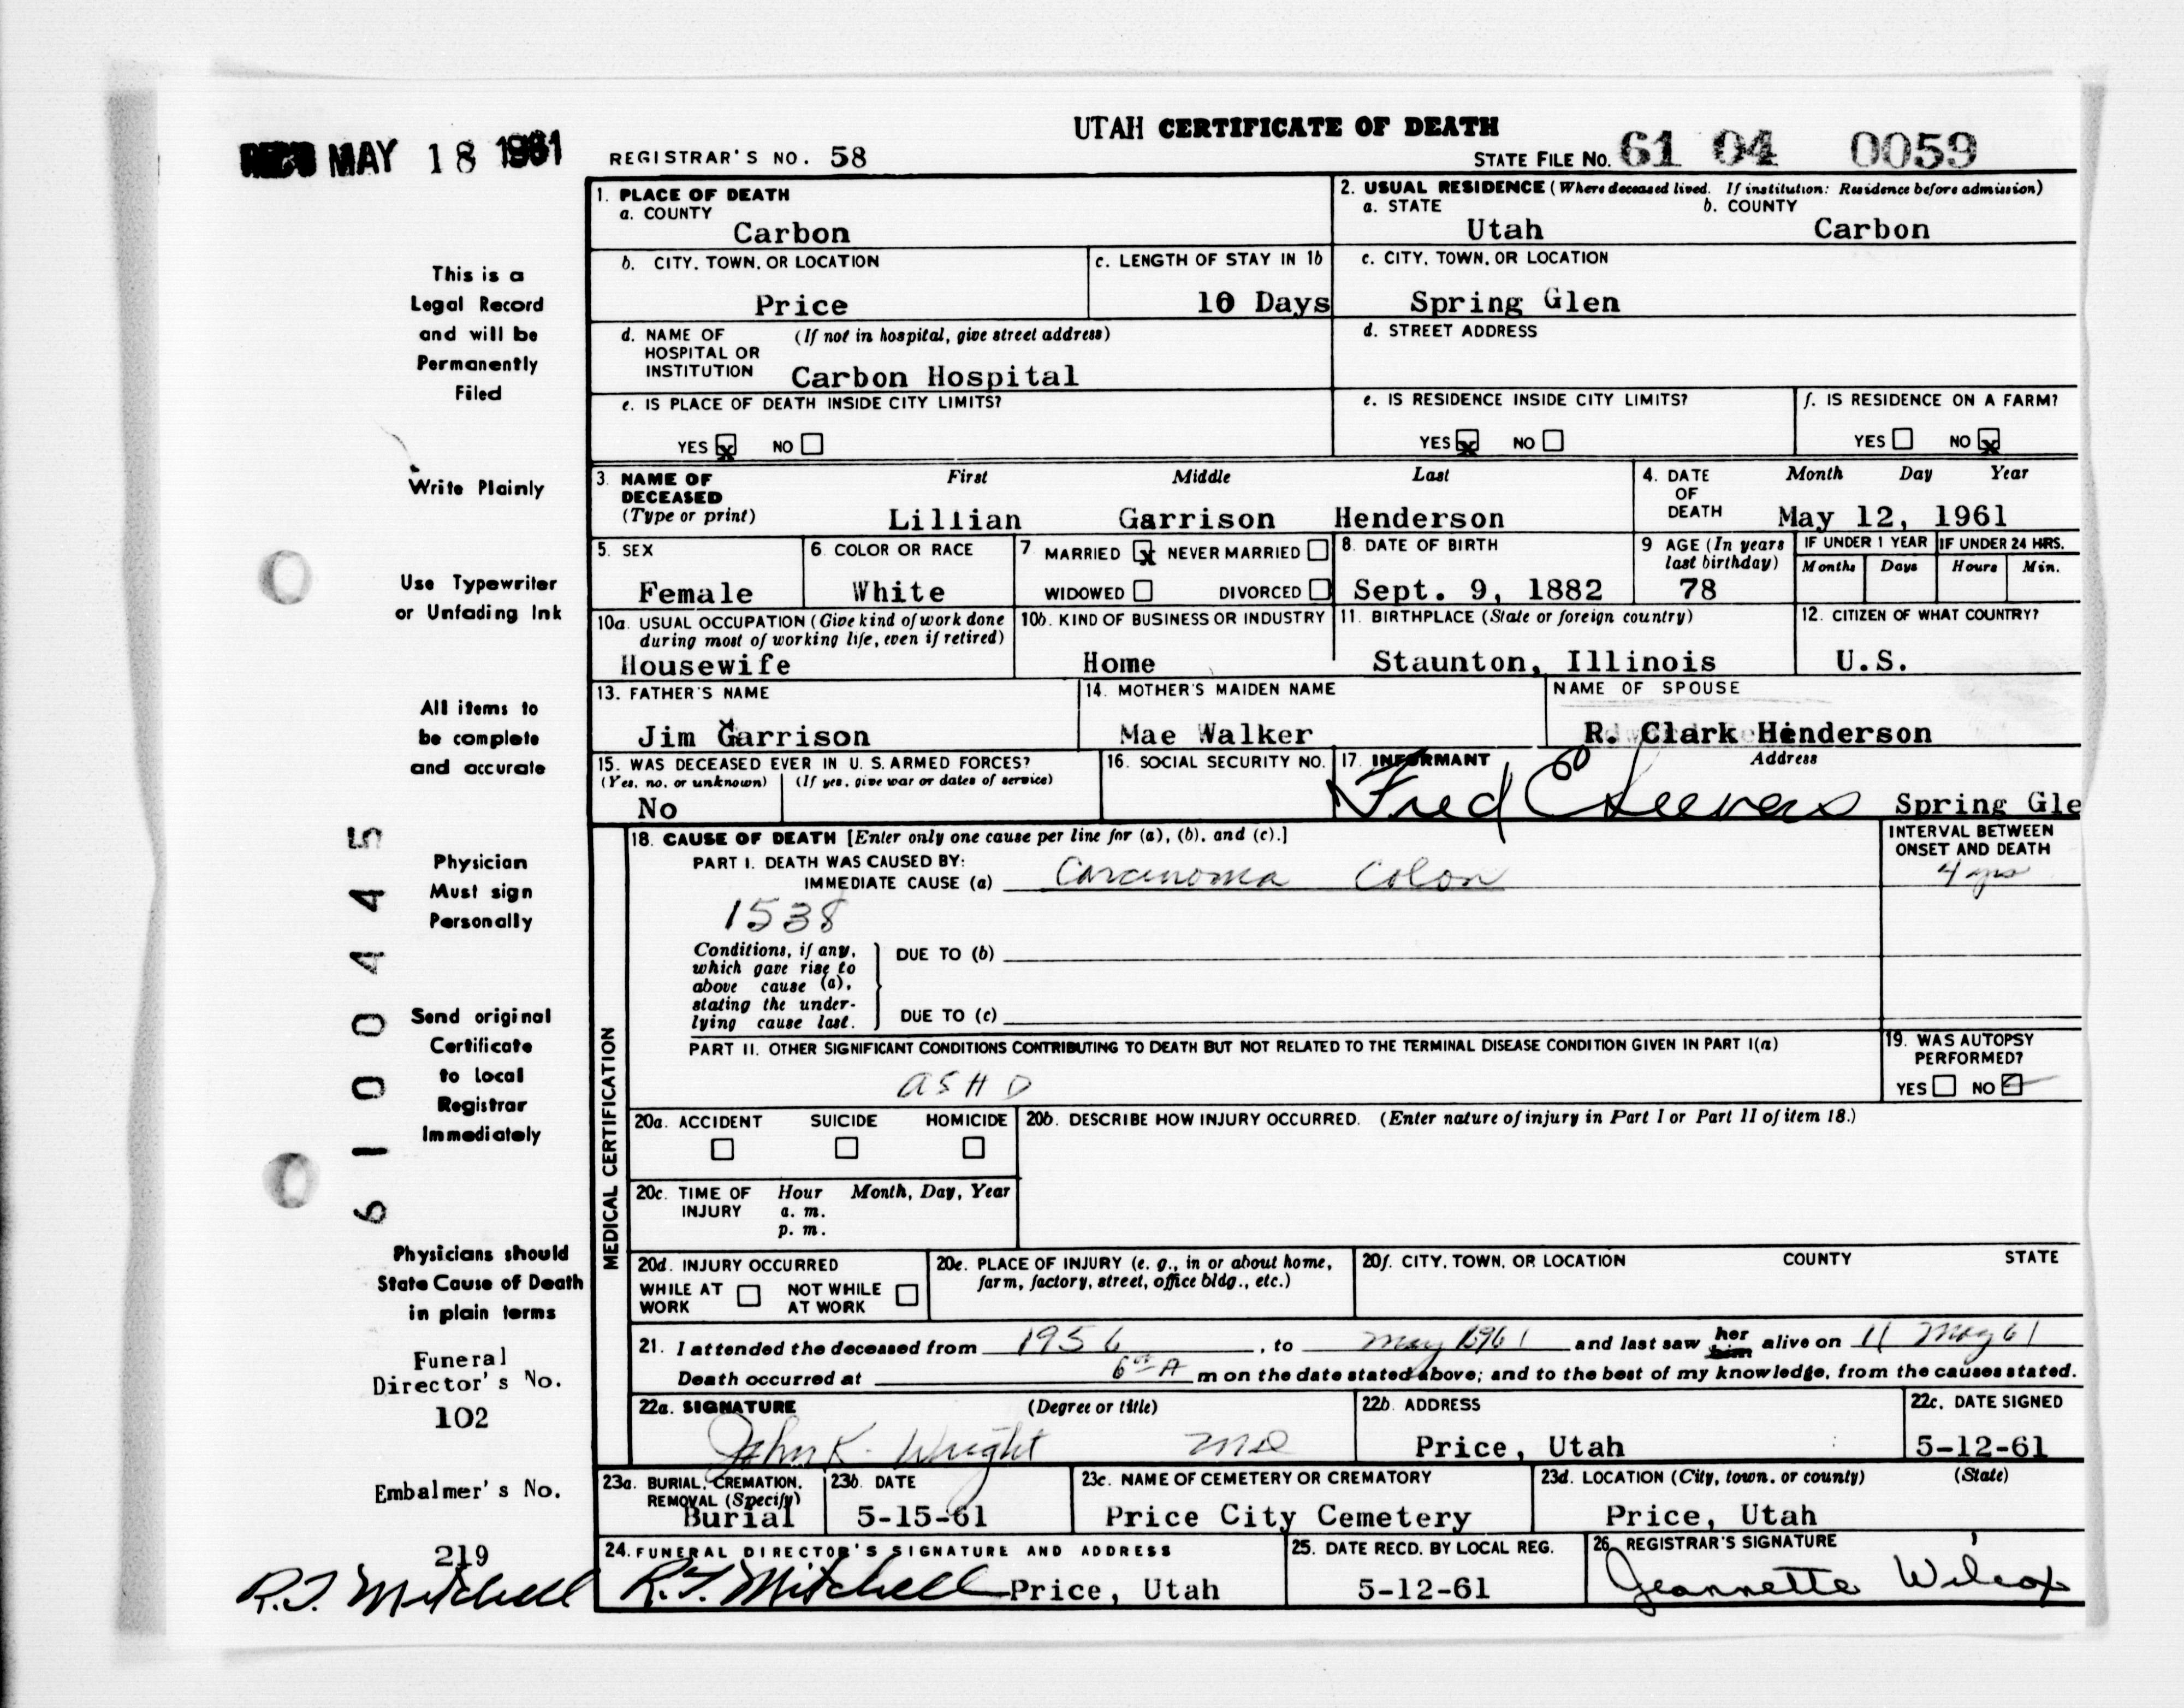 UTAH CERTIFICATE OF DEATH
MAY 18 1961
REGISTRAR'S NO. 58
STATE FILE No. 61 04 0059
This is a
Legal Record
and will be
Permanently
Filed
Write Plainly
Use Typewriter
or Unfading Ink
All items to
be complete
and accurate
Physician
Must sign
Personally
Send original
Certificate
to Local
Registrar
Immediately
Physicians should
State Cause of Death
in plain terms
Funeral
Director's No.
102
Embalmer's No.
219
R.J. Mitchell
6100445
1. PLACE OF DEATH
a. COUNTY
Carbon
2. USUAL RESIDENCE (Where deceased lived. If institution: Residence before admission)
a. STATE b. COUNTY
Utah Carbon
b. CITY, TOWN, OR LOCATION
Price
c. LENGTH OF STAY IN 1b
10 Days
c. CITY, TOWN, OR LOCATION
Spring Glen
d. NAME OF (If not in hospital, give street address)
HOSPITAL OR
INSTITUTION Carbon Hospital
d. STREET ADDRESS
e. IS PLACE OF DEATH INSIDE CITY LIMITS?
YES x NO
e. IS RESIDENCE INSIDE CITY LIMITS?
YES x NO
f. IS RESIDENCE ON A FARM?
YES NO x
3. NAME OF First Middle Last
DECEASED
(Type or print) Lillian Garrison Henderson
4. DATE Month Day Year
OF
DEATH May 12, 1961
5. SEX
Female
6. COLOR OR RACE
White
7. MARRIED x NEVER MARRIED
WIDOWED DIVORCED
8. DATE OF BIRTH
Sept. 9, 1882
9 AGE (In years
last birthday)
78
IF UNDER 1 YEAR IF UNDER 24 HRS.
Months Days Hours Min.
10a. USUAL OCCUPATION (Give kind of work done
during most of working life, even if retired)
Housewife
10b. KIND OF BUSINESS OR INDUSTRY
Home
11. BIRTHPLACE (State or foreign country)
Staunton, Illinois
12. CITIZEN OF WHAT COUNTRY?
U.S.
13. FATHER'S NAME
Jim Garrison
14. MOTHER'S MAIDEN NAME
Mae Walker
NAME OF SPOUSE
R. Clark Henderson
15. WAS DECEASED EVER IN U. S. ARMED FORCES?
(Yes, no, or unknown) (If yes, give war or dates of service)
No
16. SOCIAL SECURITY NO.
17. INFORMANT Address
Fred Spring Gle
18. CAUSE OF DEATH [Enter only one cause per line for (a), (b), and (c).]
INTERVAL BETWEEN
ONSET AND DEATH
PART I. DEATH WAS CAUSED BY:
IMMEDIATE CAUSE (a) Carcinoma Colon 4 yrs
1538
Conditions, if any,
which gave rise to
above cause (a),
stating the under-
lying cause last.
DUE TO (b)
DUE TO (c)
PART II. OTHER SIGNIFICANT CONDITIONS CONTRIBUTING TO DEATH BUT NOT RELATED TO THE TERMINAL DISEASE CONDITION GIVEN IN PART I(a)
ASHD
19. WAS AUTOPSY
PERFORMED?
YES NO
MEDICAL CERTIFICATION
20a. ACCIDENT SUICIDE HOMICIDE
20b. DESCRIBE HOW INJURY OCCURRED. (Enter nature of injury in Part I or Part II of item 18.)
20c. TIME OF Hour Month, Day, Year
INJURY a. m.
p. m.
20d. INJURY OCCURRED
WHILE AT NOT WHILE
WORK AT WORK
20e. PLACE OF INJURY (e. g., in or about home,
farm, factory, street, office bldg., etc.)
20f. CITY, TOWN, OR LOCATION COUNTY STATE
21. I attended the deceased from 1956, to May 1961 and last saw her him alive on 11 May 61
Death occurred at 6 00 A m on the date stated above; and to the best of my knowledge, from the causes stated.
22a. SIGNATURE (Degree or title)
John K. Wright MD
22b. ADDRESS
Price, Utah
22c. DATE SIGNED
5-12-61
23a. BURIAL, CREMATION,
REMOVAL (Specify)
Burial
23b. DATE
5-15-61
23c. NAME OF CEMETERY OR CREMATORY
Price City Cemetery
23d. LOCATION (City, town, or county) (State)
Price, Utah
24. FUNERAL DIRECTOR'S SIGNATURE AND ADDRESS
R.J. Mitchell Price, Utah
25. DATE RECD. BY LOCAL REG.
5-12-61
26. REGISTRAR'S SIGNATURE
Jeannette Wilcox